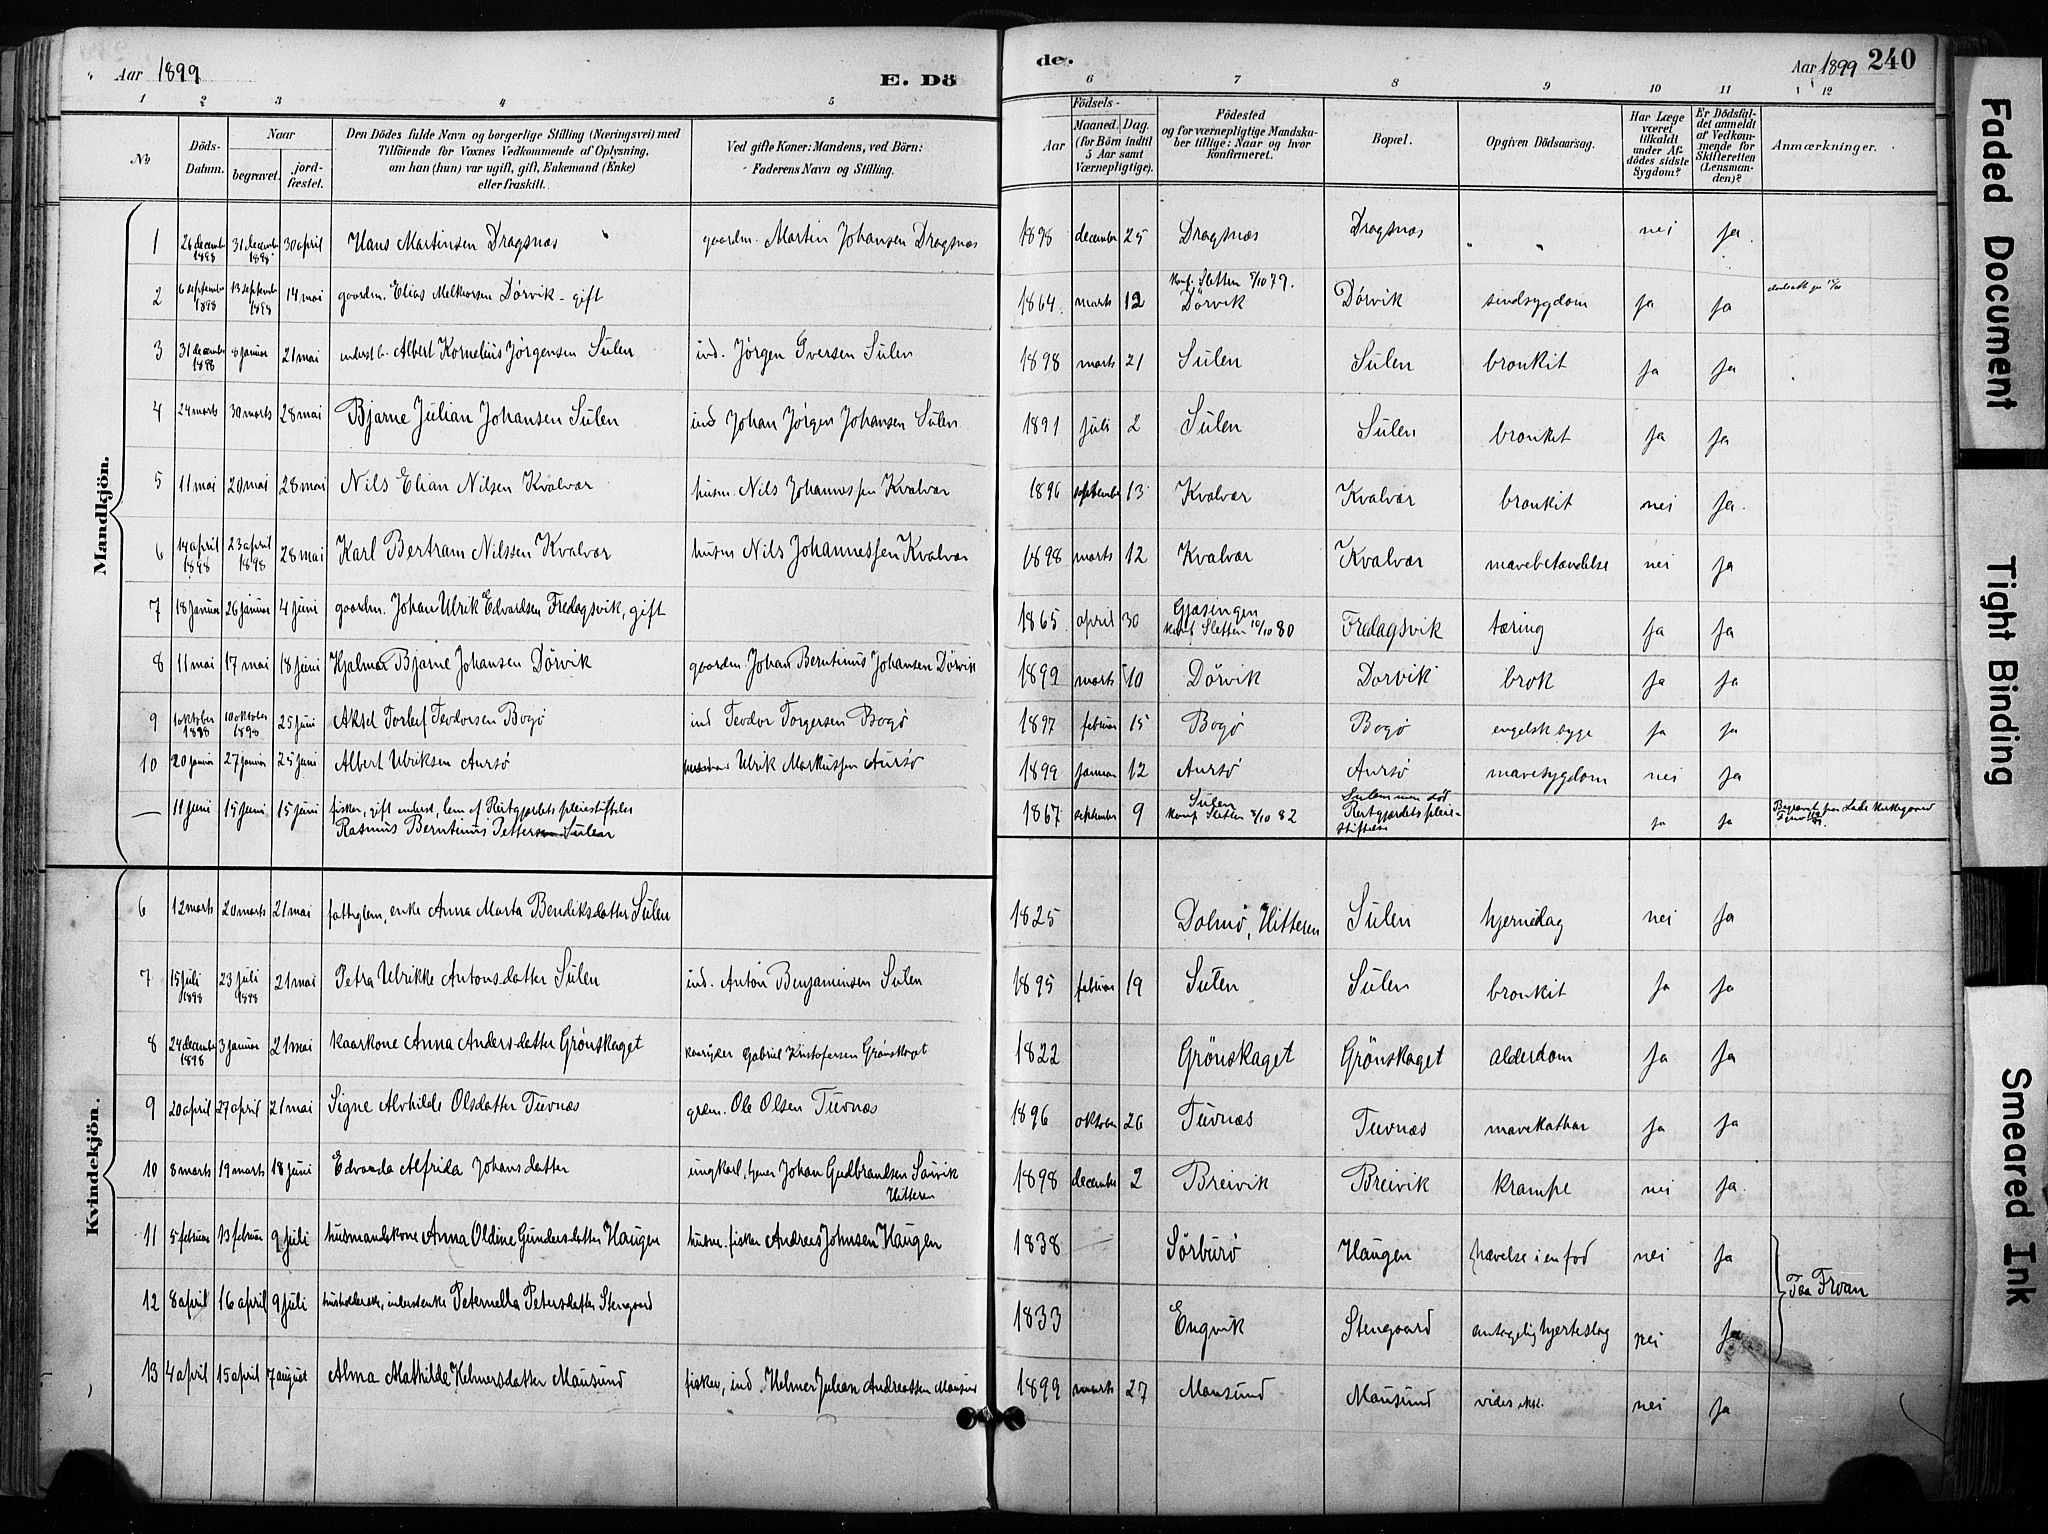 Aar 1899
E. Döde.
Aar 1899 240
1 2 3 4 5 6 7 8 9 10 11 12
No
Döds-Datum.
Naar
begravet.
jord-fæstet.
Den Dödes fulde Navn og borgerlige Stilling (Næringsvei) med
Tilföiende for Voxnes Vedkommende af Oplysning,
om han (hun) var ugift, gift, Enkemand (Enke)
eller fraskilt.
Ved gifte Koner: Mandens, ved Börn:
Faderens Navn og Stilling.
Födsels-
Aar
Maaned. Dag.
(for Börn indtil
5 Aar samt
Værnepligtige).
Födested
og for værnepligtige Mandska-
ber tillige: Naar og hvor
konfirmeret.
Bopæl.
Opgiven Dödsaarsag.
Har Læge
været
tilkaldt
under Af-
dödes sidste
Sygdom?
Er Dödsfal-
det anmeldt
af Vedkom-
mende for
Skifteretten
(Lensman-
den)?
Anmærkninger.
Mandkjön.
1 26 december 1898 31 december 1898 30 april Hans Martinsen Dragsnæs gaardm. Martin Johansen Dragsnæs 1898 december 25 Dragsnæs Dragsnæs " " nei ja.
2 6 september 1898 13 september 1898 14 mai gaardm. Elias Melkiorsen Dörvik - gift 1864. marts 12 Konf. Sletten 5/10 79. Dörvik Dörvik sindsygdom ja ja
3 31 december 1898 8 januar 21 mai inderstb. Albert Kornelius Jörgensen Sulen ind. Jörgen Iversen Sulen 1898 marts 21 Sulen Sulen bronkit ja ja
4 24 marts 30 marts 28 mai Bjarne Julian Johansen Sulen ind Johan Jörgen Johansen Sulen 1891 juli 2 Sulen Sulen bronkit ja ja
5 11 mai 20 mai 28 mai Nils Elian Nilsen Kvalvær husm. Nils Johannessen Kvalvær 1896 september 13 Kvalvær Kvalvær bronkit nei ja.
6 14 april 1898 23 april 1898 28 mai Karl Bertram Nilssen Kvalvær husm Nils Johannessen Kvalvær 1898 marts 12 Kvalvær Kvalvær mavebetændelse nei ja
7 18 januar 26 januar 4 juni gaardm. Johan Ulrik Edvardsen Fredagsvik, gift 1865 april 30 Gjæsingen Konf Sletten 10/10 80 Fredagsvik tæring ja ja
8 11 mai 17 mai 18 juni Hjalmar Bjarne Johansen Dörvik gaardm. Johan Berntinus Johansen Dörvik 1899 marts 10 Dörvik Dorvik brok ja ja
9 1 oktober 1898 10 oktober 1898 25 juni Aksel Torlef Teodorsen Bogö ind Teodor Torgersen Bogö 1897 februar 15 Bogö Bogö engelsk syge ja ja
10 20 januar 27 januar 25 juni Albert Ulriksen Aursö Ulrik Markussen Aursö 1899 januar 12 Aursö Aursö mavesygdom nei ja
— 11 juni 15 juni 15 juni fisker, gift inderst, lem af Reitgjærdets pleiestiftelse
Rasmus Berntinus Pettersen Sulen 1867 september 9 Sulen Konf Sletten 8/10 82 Sulen men död Reitgjærdets pleie-stiftelse ja ja Begravet fra Lade Kirkegaard
Kvindekjön.
6 12 marts 20 marts 21 mai fattiglem, enke Anna Marta Bendiksdatter Sulen 1825 Dolmö, Hitteren Sulen hjerneslag nei ja
7 15 juli 1898 23 juli 1898 21 mai Petra Ulrikke Antonsdatter Sulen ind. Anton Benjaminsen Sulen 1895 februar 19 Sulen Sulen bronkit ja ja
8 24 december 1898 3 januar 21 mai kaarkone Anna Andersdatter Grönskaget kaaryder Gabriel Kristofersen Grönskaget 1822 Grönskaget Grönskaget alderdom ja ja
9 20 april 27 april 21 mai Signe Alvhilde Olsdatter Tuvnæs grdm. Ole Olsen Tuvnæs 1896 oktober 26 Tuvnæs Tuvnæs mavekathar ja ja
10 8 marts 19 marts 18 juni Edvarda Alfrida Johansdatter ungkarl, tjener Johan Gudbrandsen Sörvik Hitteren 1898 december 2 Breivik Breivik krampe nei ja.
11 5 februar 13 februar 9 juli husmandskone Anna Oldine Gundersdatter Haugen husm. fisker Andreas Johnsen Haugen 1838 Sörburö Haugen hævelse i en fod nei ja
12 8 april 16 april 9 juli husholderske, inderstenke Peternella Petersdatter Stengaard 1833 Engvik Stengaard antagelig hjerteslag nei ja
Paa Froan
13 4 april 15 april 7 august Alma Mathilde Helmersdatter Mausund fisker, ind. Helmer Julian Andreassen Mausund 1899 marts 27 Mausund Mausund vides ikke. nei ja
Faded Document
Tight Binding
Smeared Ink